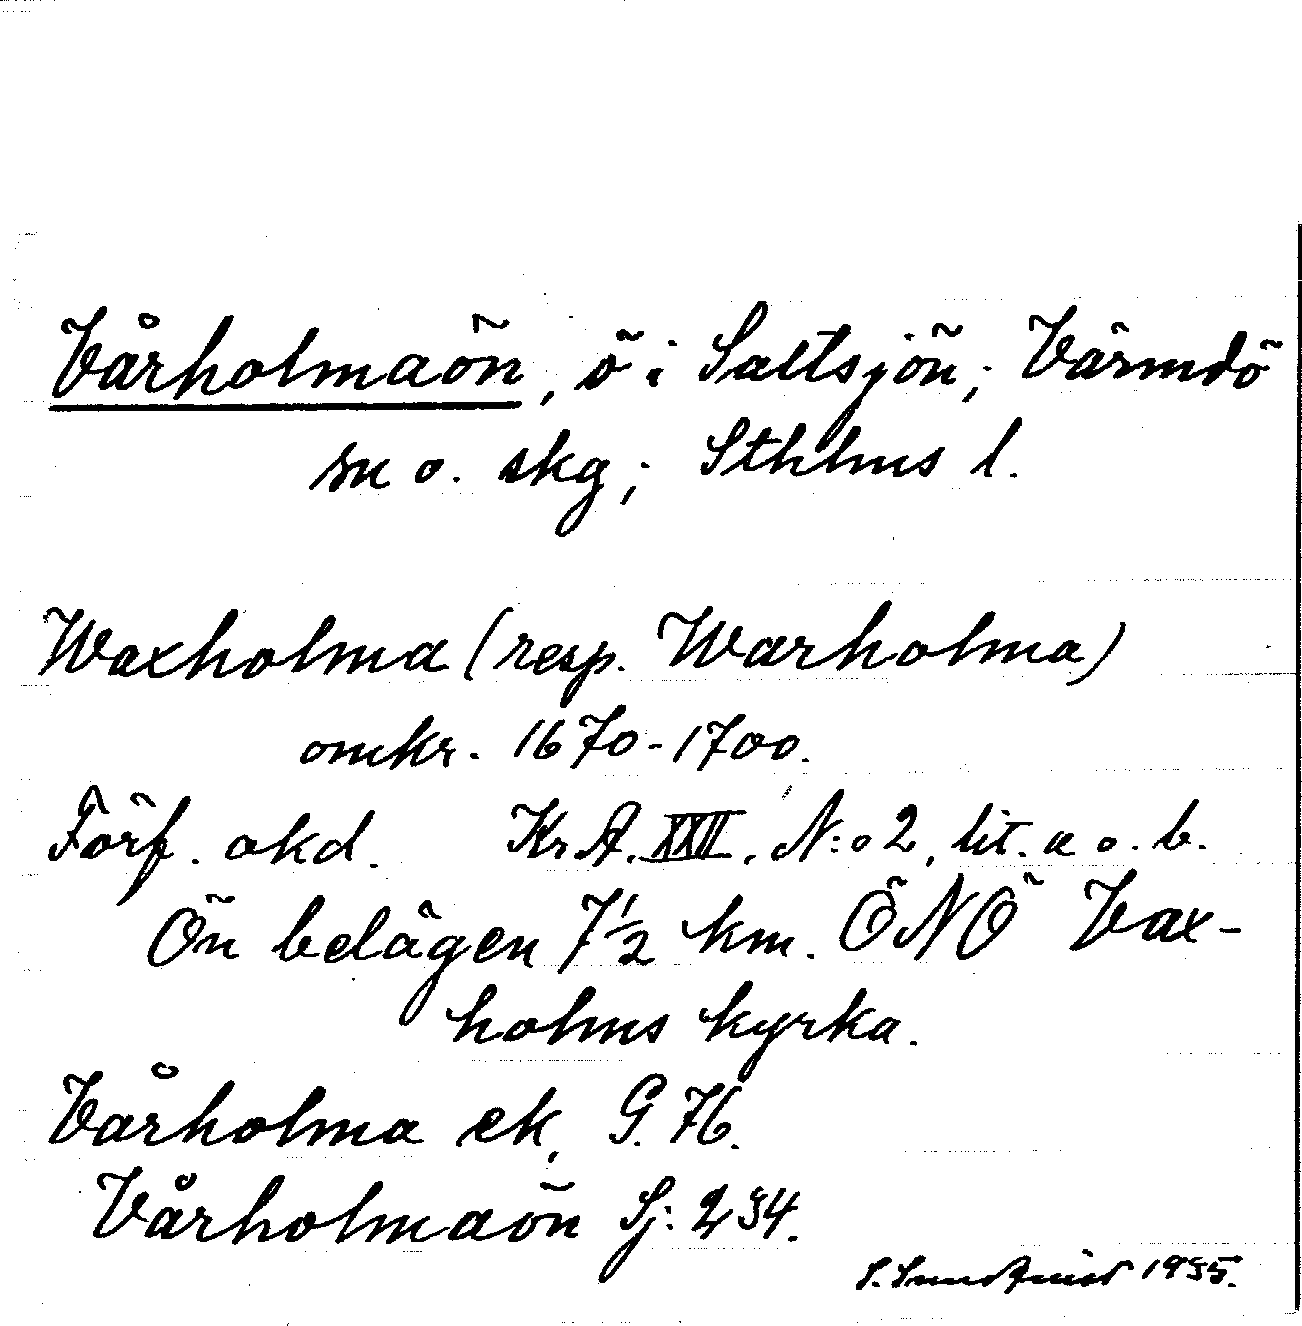 Vårholmaön, ö i Saltsjön; Värmdö
sn o. skg; Sthlms l.
Waxholma (resp. Warholma)
omkr. 1670-1700.
Förf. okd. Kr A. XXII. N:o 2, lit. a o. b.
Ön belägen 7 1/2 km. ÖNÖ Vax-
holms kyrka.
Vårholma ek, G. 76.
Vårholmaön Sj: 234.
S. Sundquist 1935.